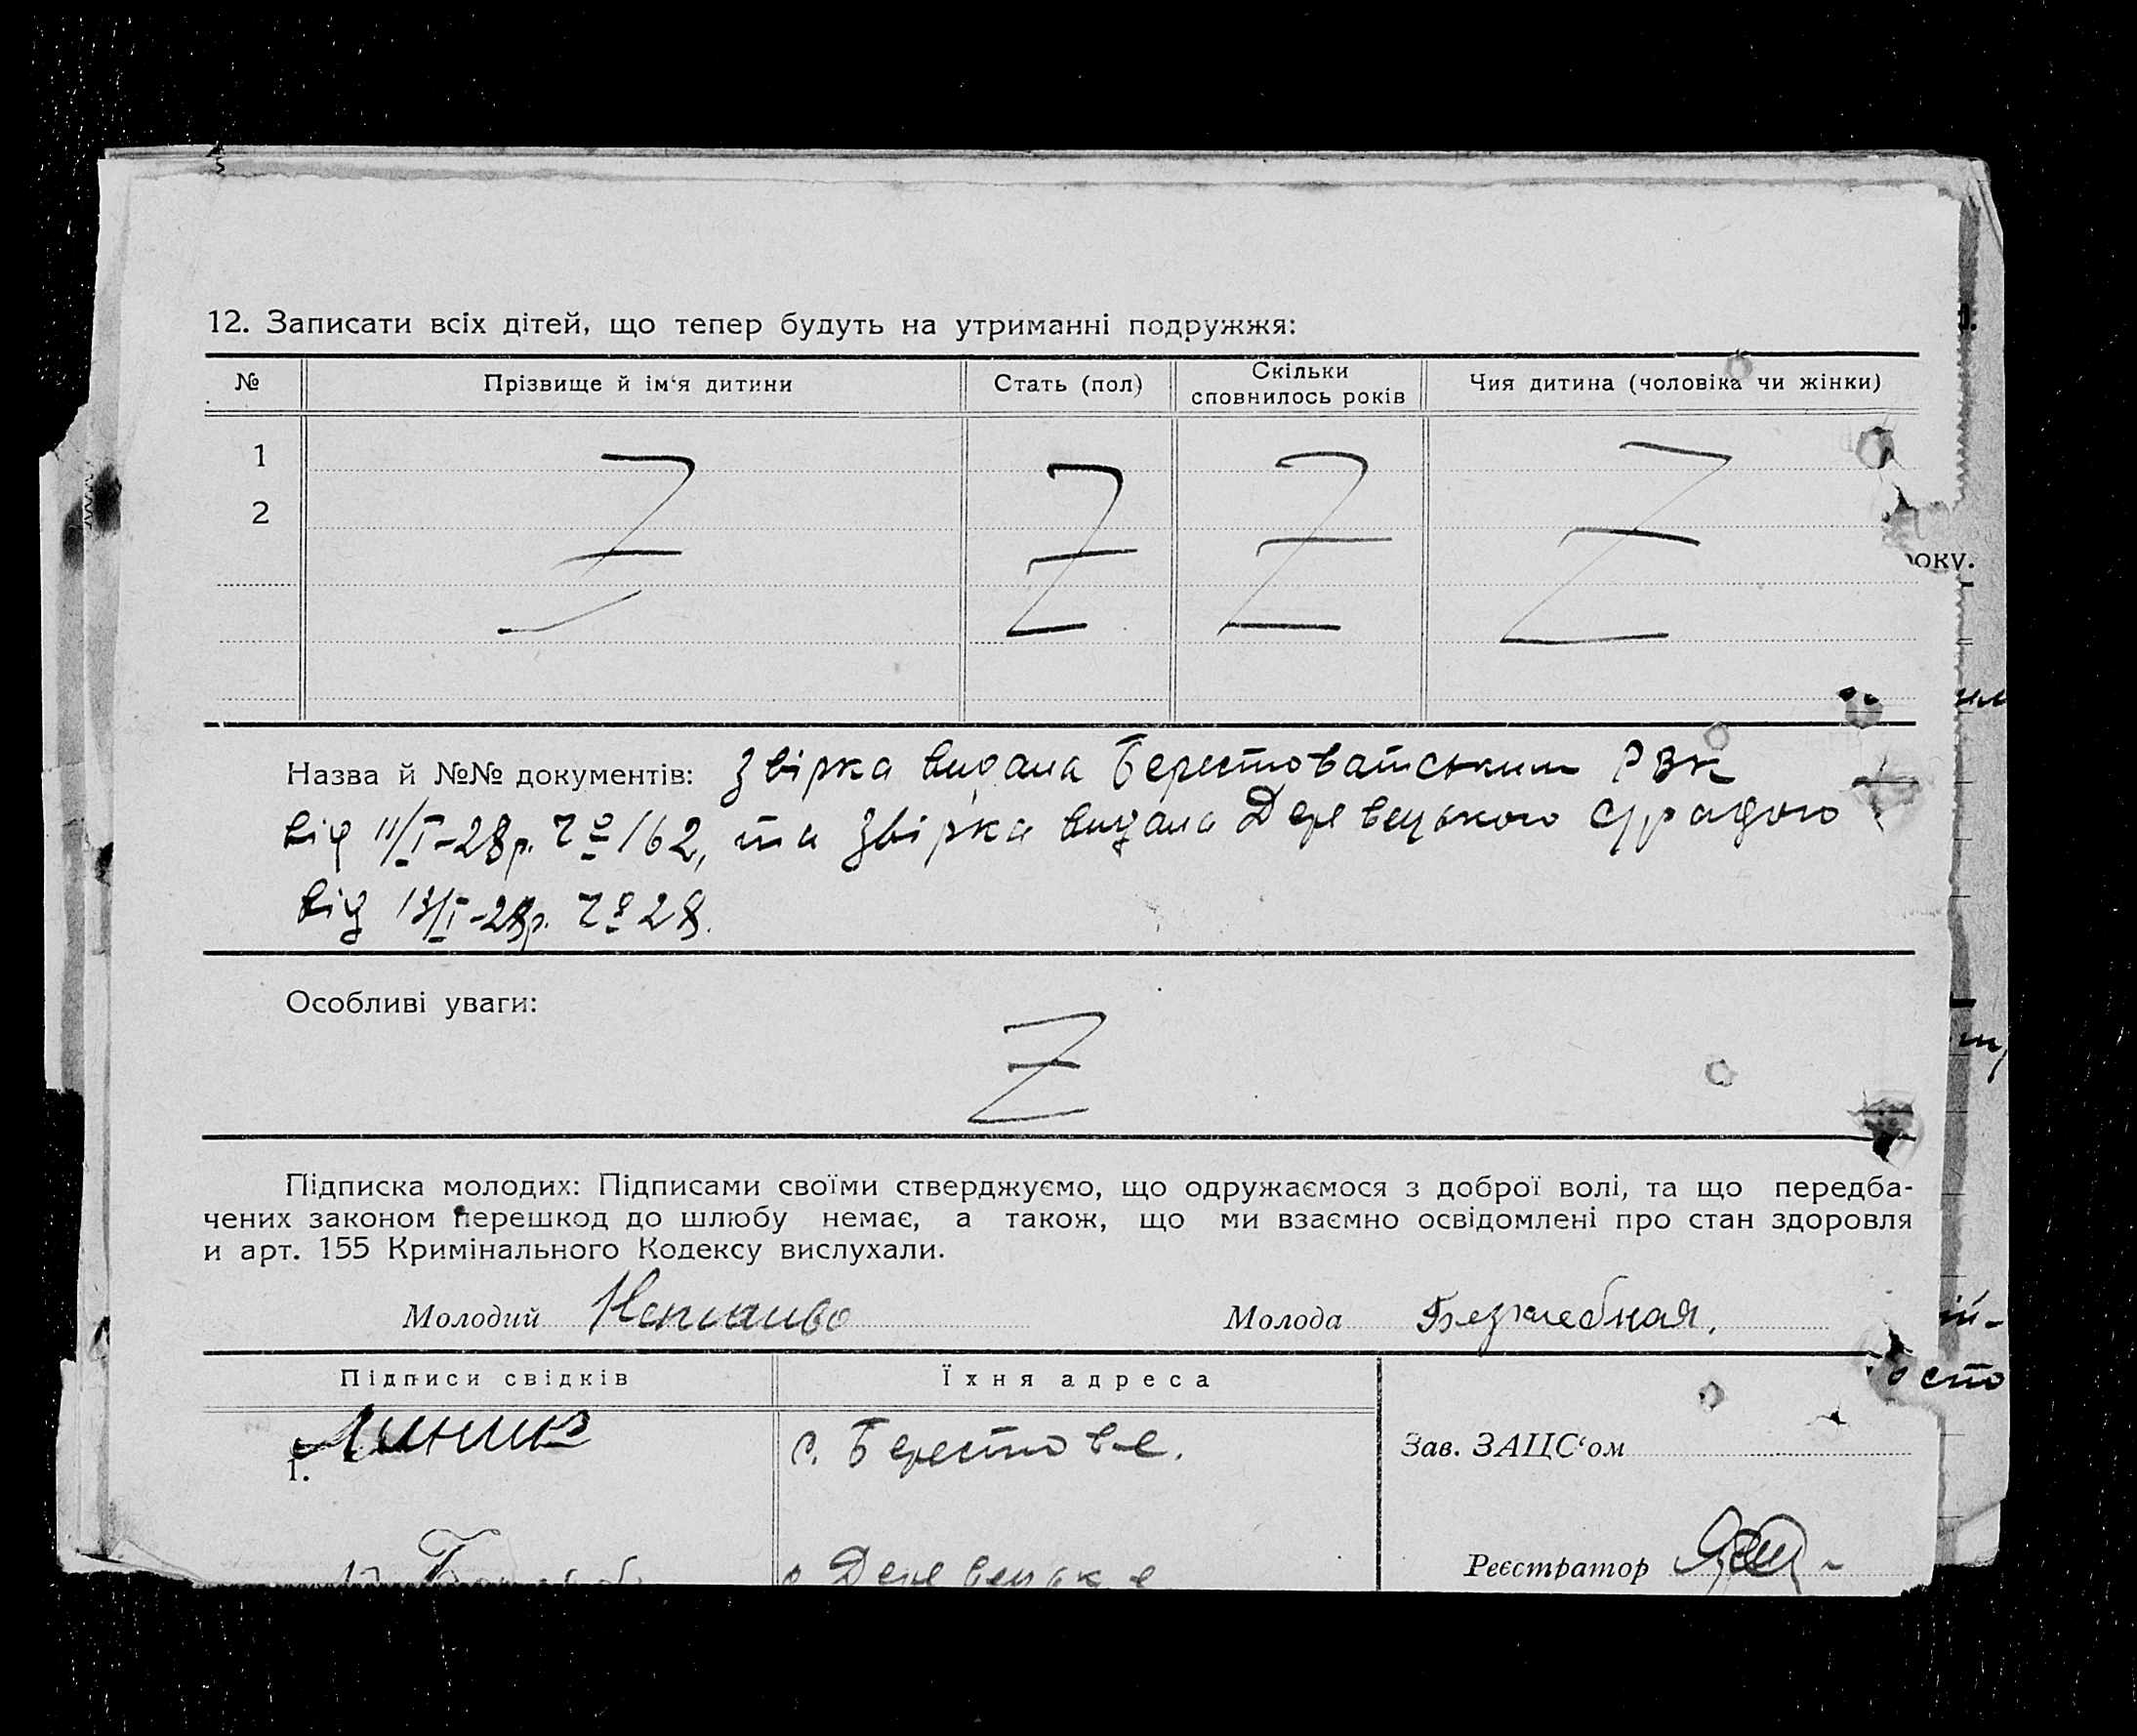 12. Записати всіх дітей, що тепер будуть на утриманні подружжя:
№ Прізвище й ім'я дитини Стать (пол) Скільки сповнилось років Чия дитина (чоловіка чи жінки)
1 Z Z Z Z
2
року.
Назва й №№ документів: Звірка видана Берестоватським РВК
від 11/I-28р. № 162, та Звірка видана Деревецькою с/радою
від 13/I-28р. № 28.
Особливі уваги:
Z
Підписка молодих: Підписами своїми стверджуємо, що одружаємося з доброї волі, та що передба-
чених законом перешкод до шлюбу немає, а також, що ми взаємно освідомлені про стан здоровля
и арт. 155 Кримінального Кодексу вислухали.
Молодий Молода Безхлебная.
Підписи свідків Їхня адреса
1. с. Берестове. Зав. ЗАЦС'ом
Реєстратор